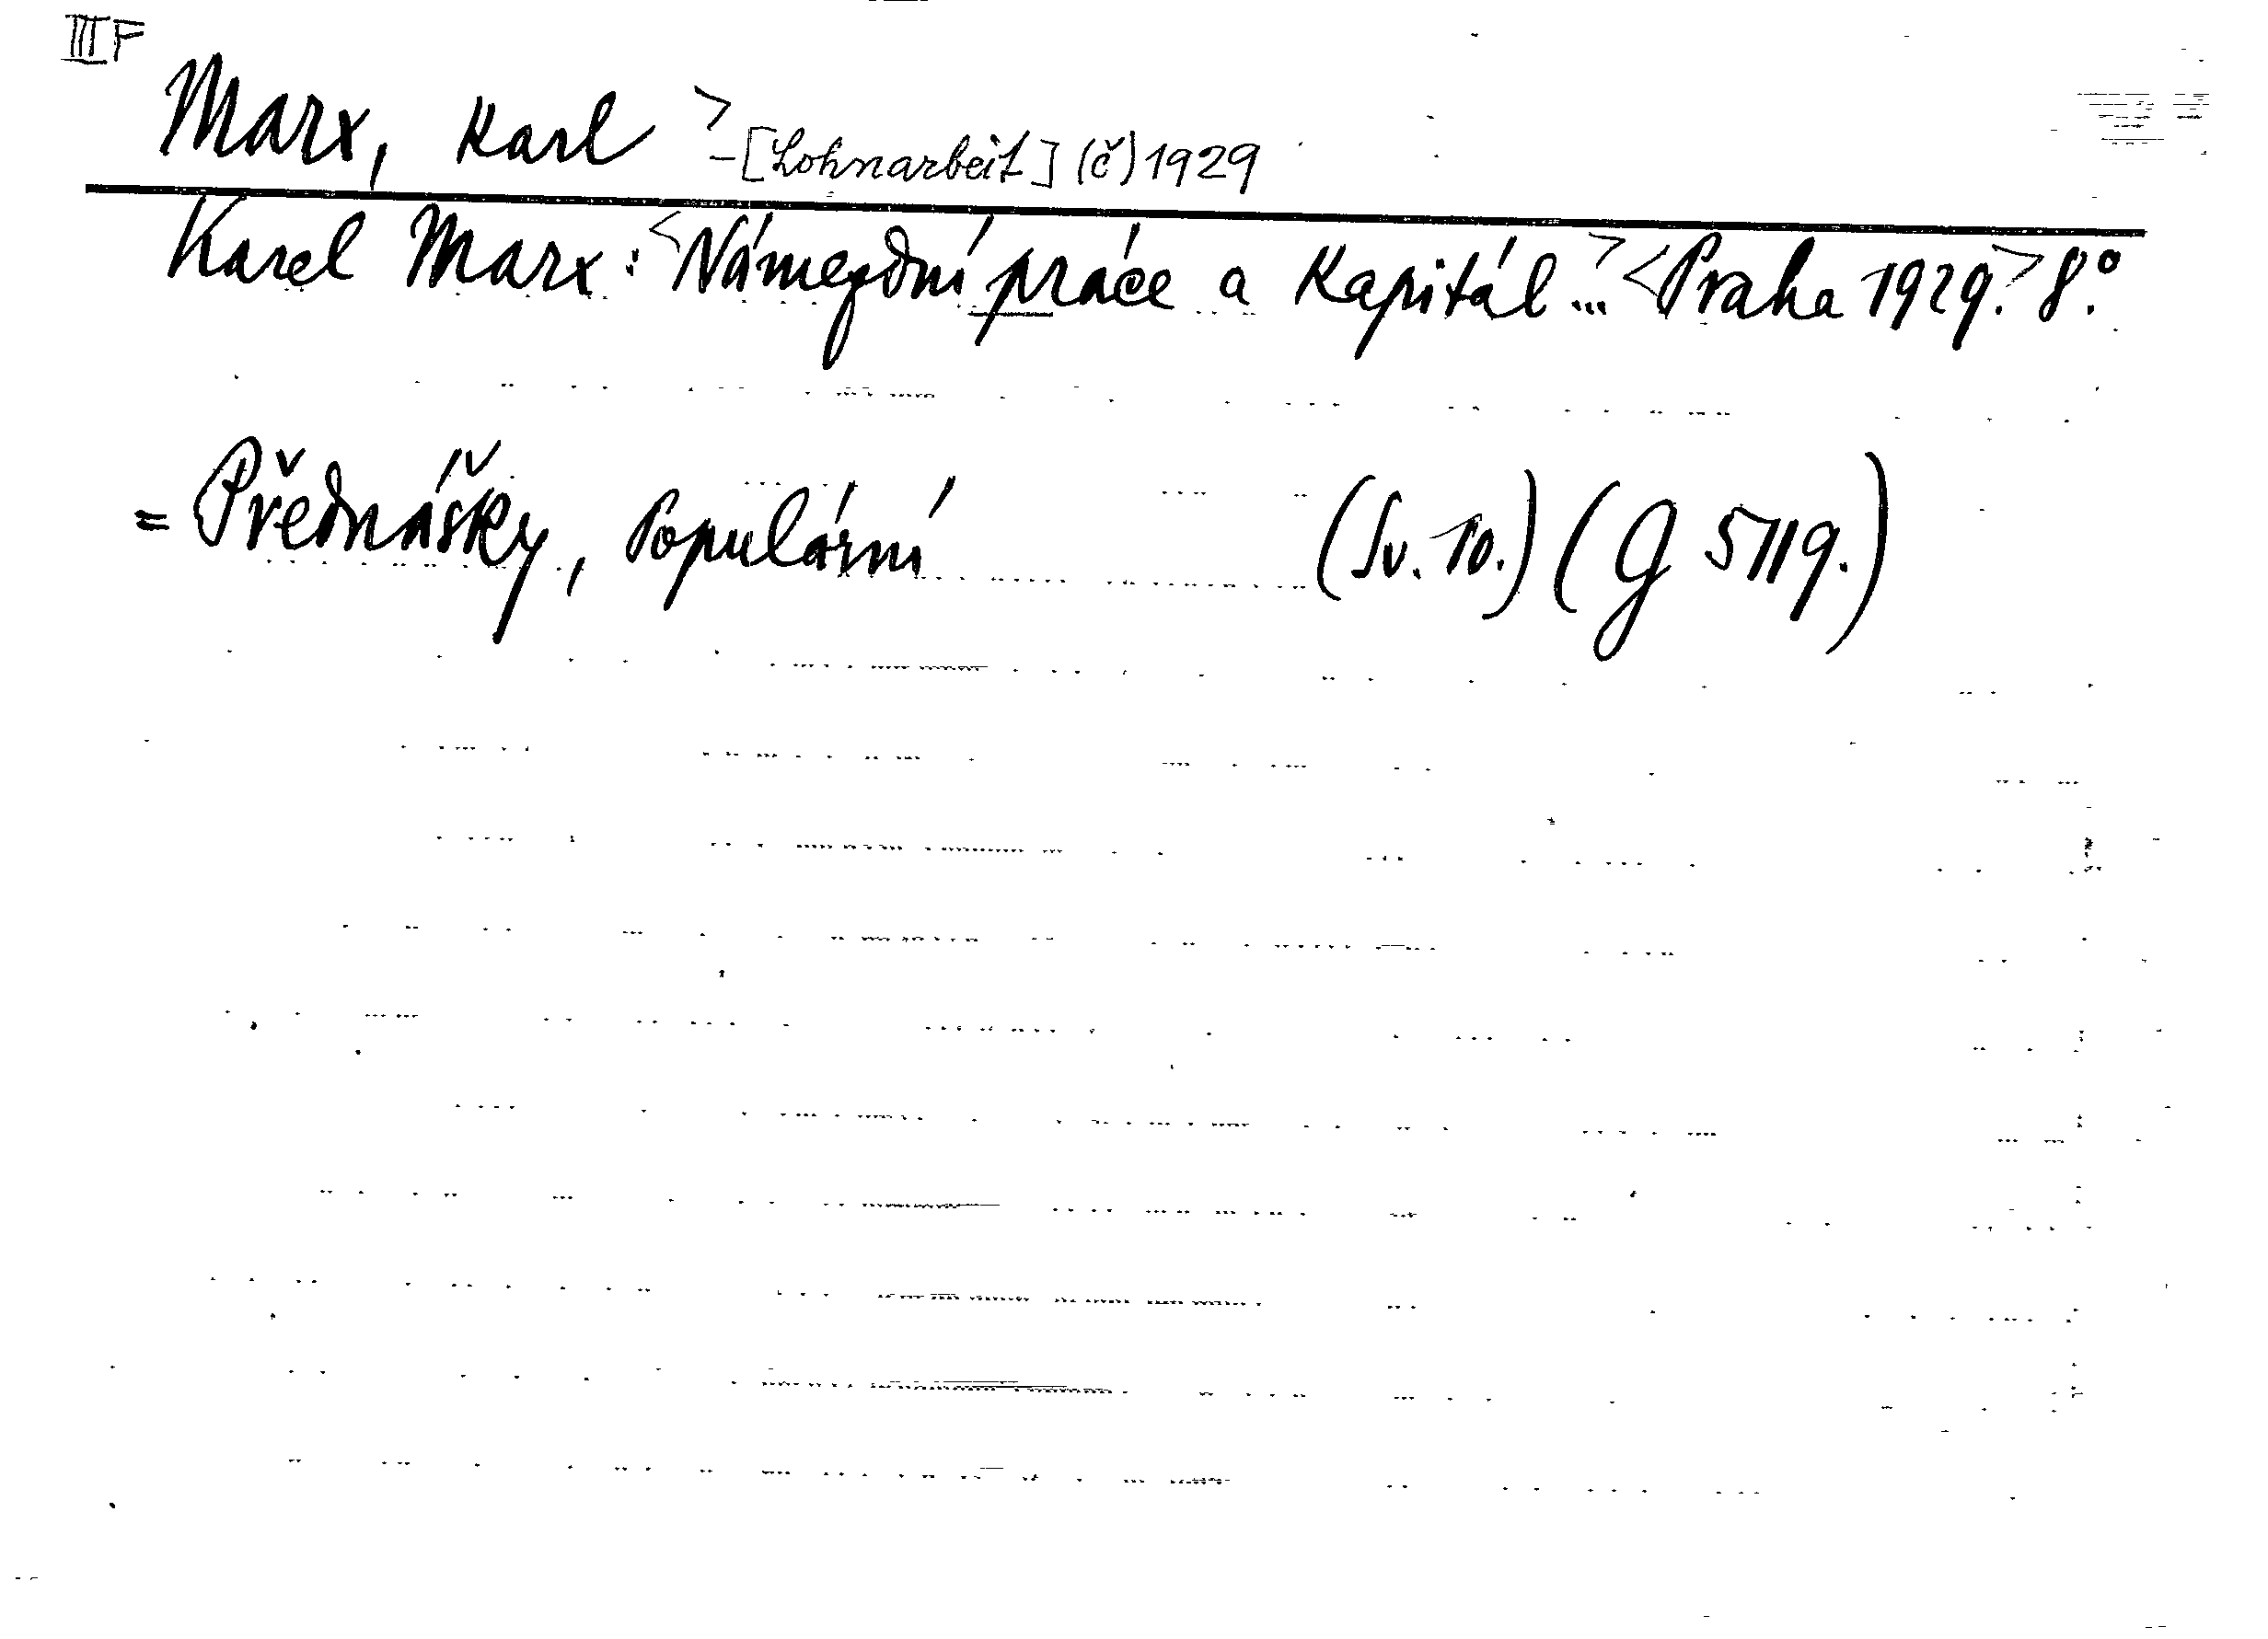 III F
Marx, Karl > - [Lohnarbeit] (č) 1929
Karel Marx: <Námezdní práce a Kapitál...> <Praha 1929.> 8°.
= Přednášky, Populární (Sv. 10.) (G 5119.)